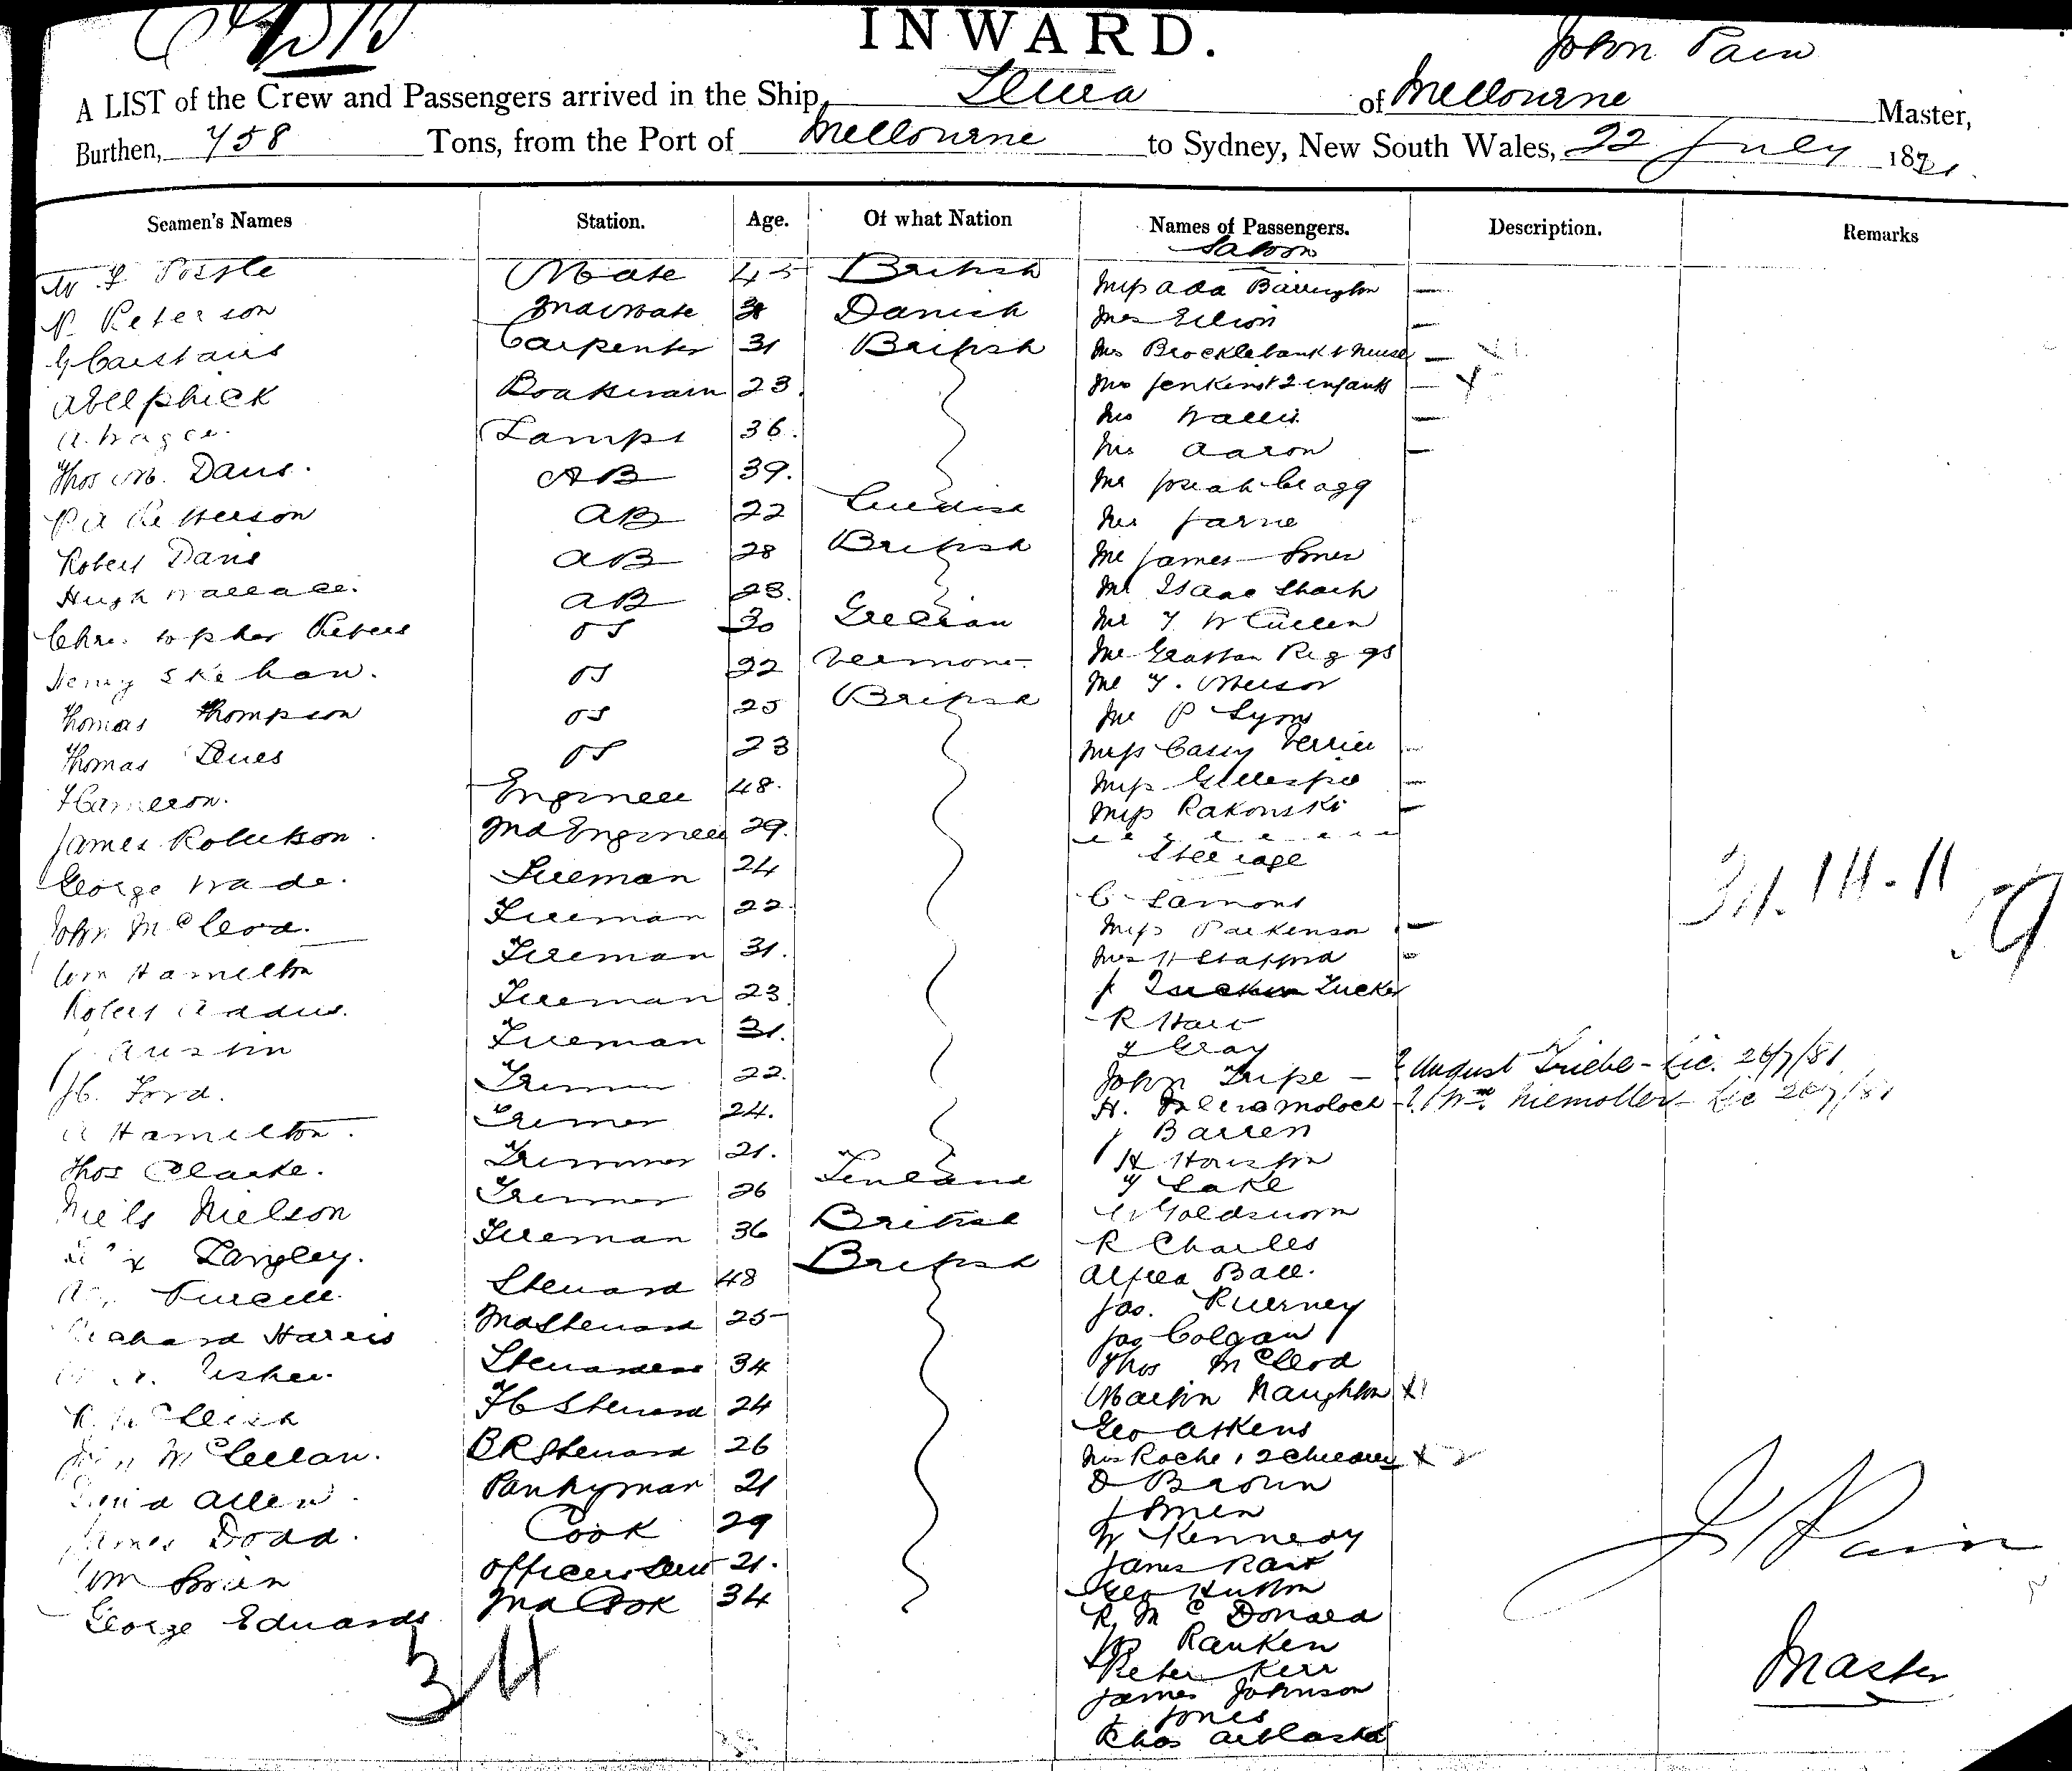 INWARD.
John Pain
A LIST of the Crew and Passengers arrived in the Ship, of Melbourne Master,
Burthen, 758 Tons, from the Port of Melbourne to Sydney, New South Wales, 22 July 1881
Seamen's Names Station. Age. Of what Nation Names of Passengers. Description. Remarks
Saloon
Mate 45 British Miss Ada Barrington —
P. Peterson 2nd Mate Danish Mrs —
G Carstairs Carpenter 31 British Mrs Brocklebank & nurse —
Abel phick Boatswain 23. Mrs Jenkins & 2 infants — X
Lamps 36. Mrs Wallis —
Thos M. Davis. AB 39. Mrs Aaron —
AB 22 Swedish Mr Josiah Cragg
Robert Davis AB 28 British
Hugh Wallace. AB 23. Mr James Jones
Christopher Peters OS 30 Grecian Mr Isaac
Henry Skehan. OS 22 Mr T W Cullen
Thomas Thompson OS 25 British Mr Grattan Riggs
Thomas OS 23 Mr P Lyons
Cameron. Engineer 48. Miss Casey
James Robertson 2nd Engineer 29. Miss Gillespie —
George Wade. Fireman 24 Miss Rakowski —
Steerage
John McCleod. Fireman 22 C Lamont
Wm Hamilton Fireman 31. Miss Parkenson —
Robert Fireman 23 Mrs H Stafford
J Austin Fireman 31. J Tucker
Ford. Trimmer 22. R Hart
Hamilton. Trimmer 24. T Gray
Thos Clarke. Trimmer 21. John Tripe — ? August Triebe - Lic. 26/7/81
Niels Nielson Trimmer 26 Finland H. — ? Wm. Niemoller - Lic 26/7/81
Langley. Fireman 36 British J Barren
Purcell Steward 48 British H Houston
Richard Harris 2nd Steward 25 T Lake
Usher. Stewardess 34 R Charles
FC Steward 24 Alfred Ball.
McLellan. BR Steward 26 Jas. Kierney
David Allen Pantryman 21 Jas Colgan
James Dodd. Cook 29 Thos McCleod
Wm Officers Stew 21. Martin Naughton X
George Edwards 2nd Cook 34 Geo Atkens
Mrs Roche & 2 children X 2
D Brown
J Jones
W Kennedy
James
Geo Hutton
R McDonald
W Ranken
Peter Kerr
James Johnson
J Jones
Chas
34
J Pain
Master